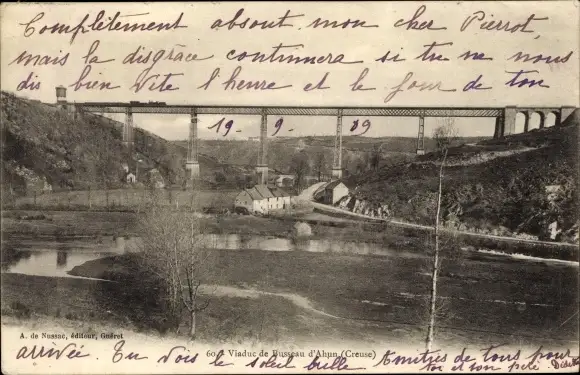 Complètement absout mon cher Pierrot,
mais la disgrâce continuera si tu ne nous
dis bien vite l'heure et le jour de ton
19 9 09
A. de Nussac, éditeur, Guéret
60 - Viaduc de Busseau d'Ahun (Creuse)
arrivée Tu vois le soleil brille de tous pour
toi et son